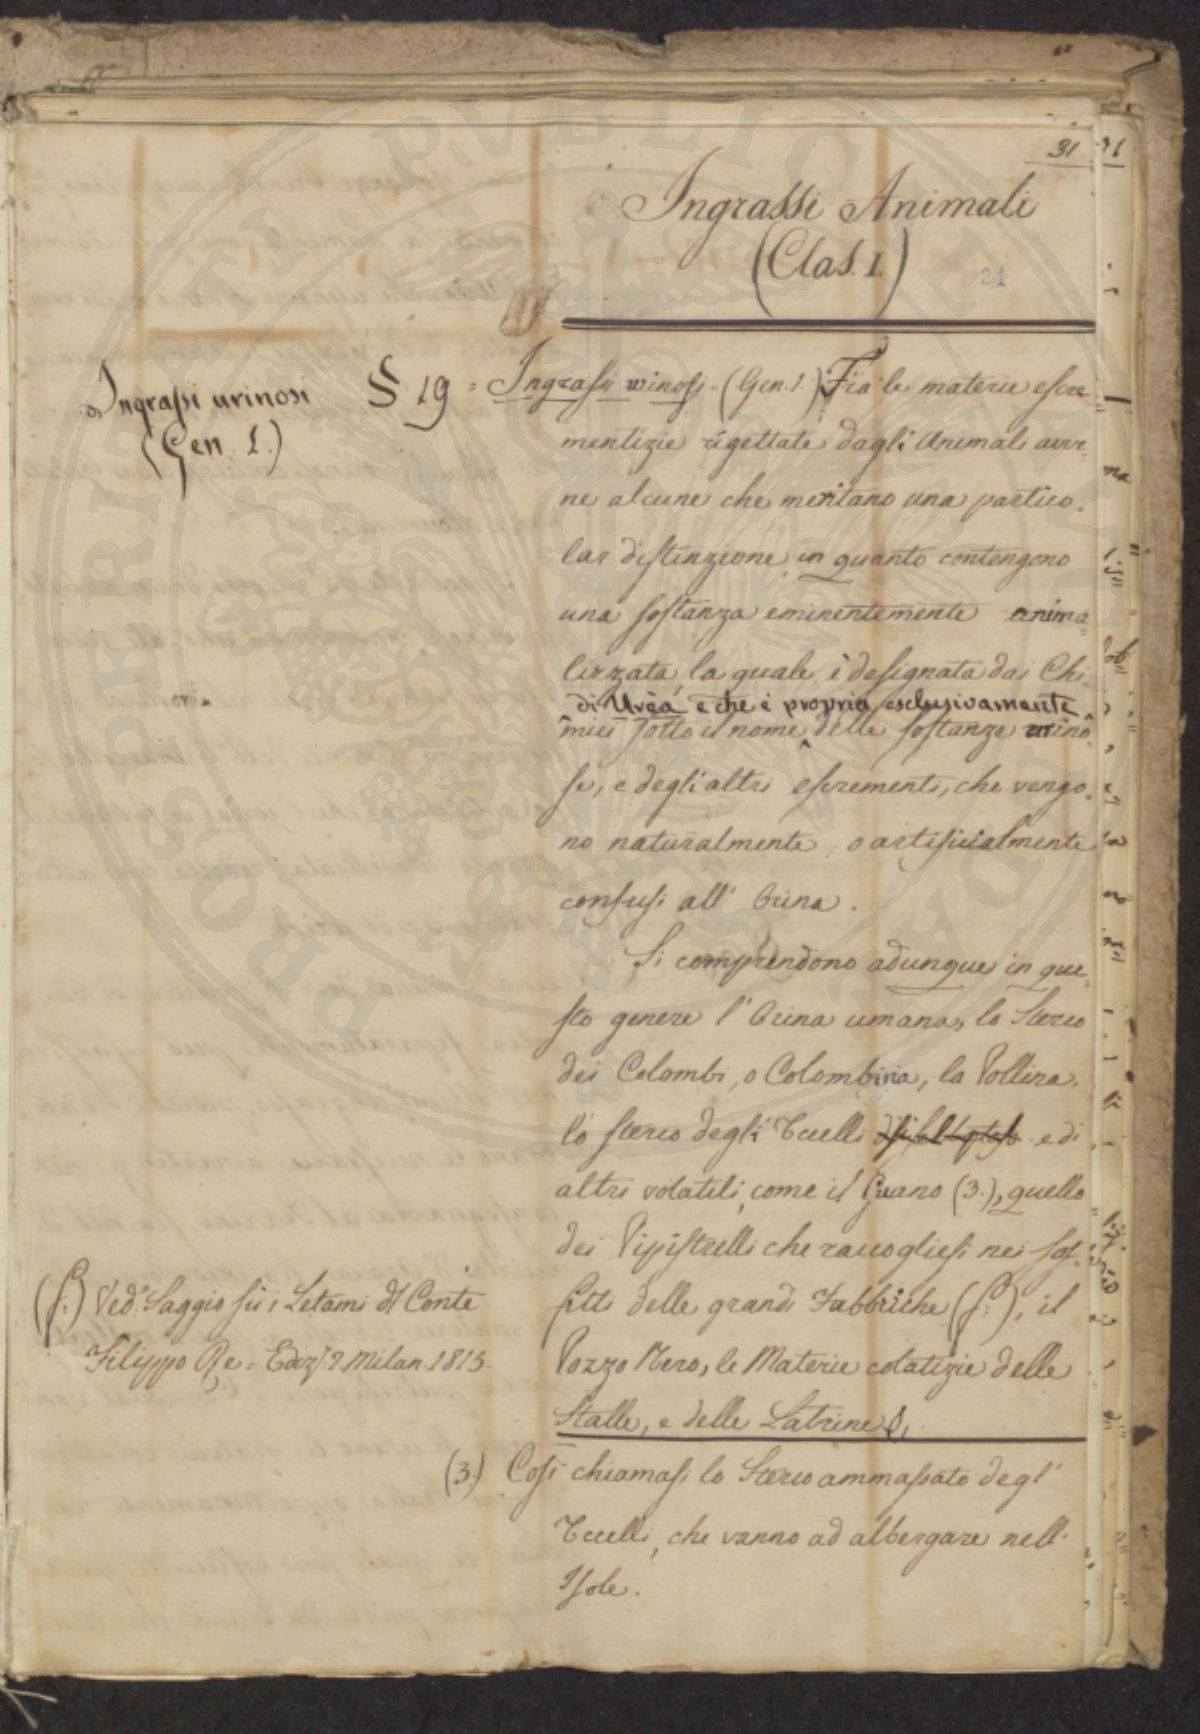 31
Ingrassi Animali
(Clas. I.)
21
Ingrassi urinosi
(Gen. I.)
§ 19 = Ingrassi urinosi - (Gen. I.) Fra le materie escre-
mentizie rigettate dagli Animali avve-
ne alcune che meritano una partico-
lar distinzione in quanto contengono
una sostanza eminentemente anima-
lizzata, la quale è designata dai Chi-
di Urea e che è propria esclusivamente
mici sotto il nome delle sostanze urino-
se, e degli altri escrementi, che vengo-
no naturalmente o artificialmente
confusi all' Orina.
Si comprendono adunque in que-
sto genere l' Orina umana, lo Sterco
dei Colombi, o Colombina, la Pollina.
lo sterco degli Uccelli e di
altri volatili, come il Guano (3.), quello
dei Pipistrelli che raccogliesi nei sof-
fitti delle grandi Fabbriche (f:), il
Pozzo Nero, le Materie colatizie delle
Stalle, e delle Latrine
(f:) Ved: Saggio sù i Letami del Conte
Filippo Re = Ediz. Milan. 1815.
(3.) Così chiamasi lo Sterco ammassato degl'
Uccelli, che vanno ad albergare nell'
Isole.